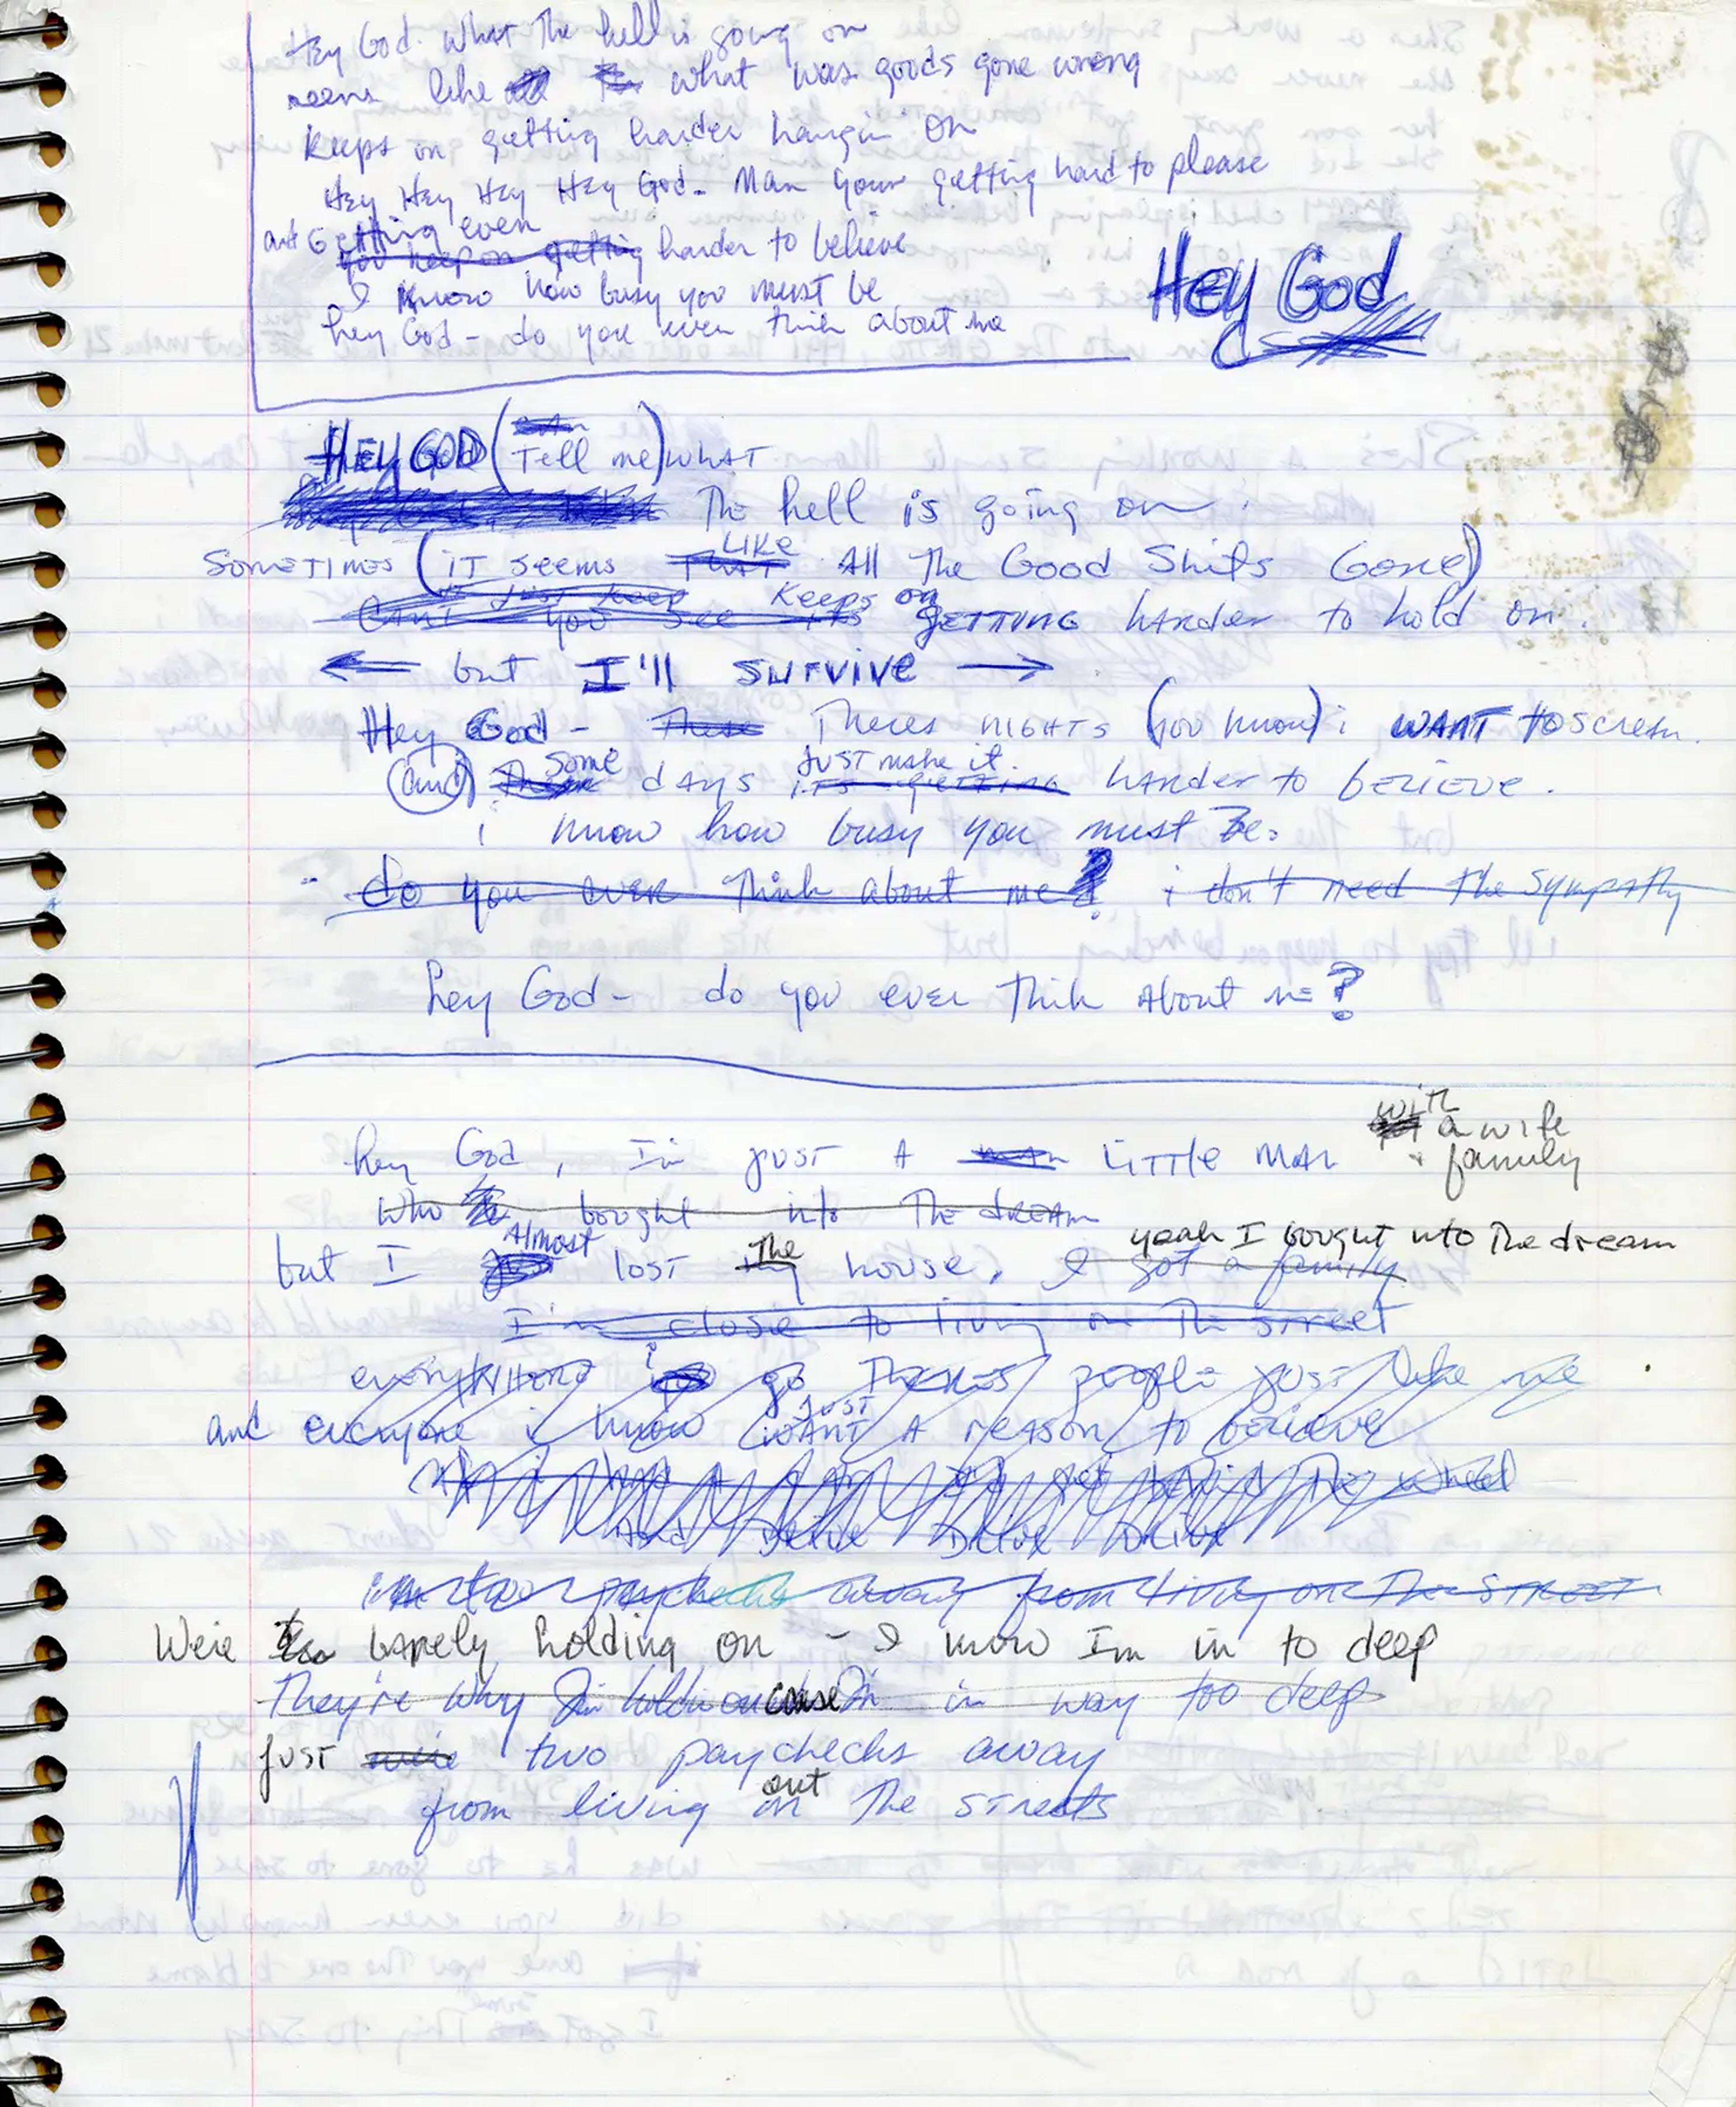 Hey God. What The hell is going on
seems like what was goods gone wrong
keeps on getting harder hangin' on
Hey Hey Hey Hey God - Man your getting hard to please
and Getting even
you keep on getting harder to believe
I know how busy you must be
hey God - do you ever think about me
Hey God
HEY GOD (Tell me) WHAT
The hell is going on.
LIKE
SOMETIMES (iT seems THAT All The Good Shits Gone)
it just keep Keeps on
Can't you see its GETTING hArder to hold on.
← but I'll survive →
Hey God - These Theres NIGHTS (you know) i WANT to scream.
some JUST make it.
(and) These dAys its getting hArder to bELIEVE.
i know how busy you must Be.
- do you ever think about me? i don't need the sympathy
hey God - do you ever Think About me?
with
a wife
hey God, I'm just A man LITTLE MAN + family
who bought into The dream
Almost The yeah I bought into The dream
but I just lost my house, I got a family
I'm close to living on The street
everywhere i go Theres people just like me
JUST
and everyone i know WANT A reason to believe
get behind The wheel
And Drive Drive Drive
i'm two paychecks away from living on The STREET
We're barely holding on - I know Im in to deep
They're why I'm holdin on cause I'm in way too deep
just we're two paychecks away
out
from living on The streets